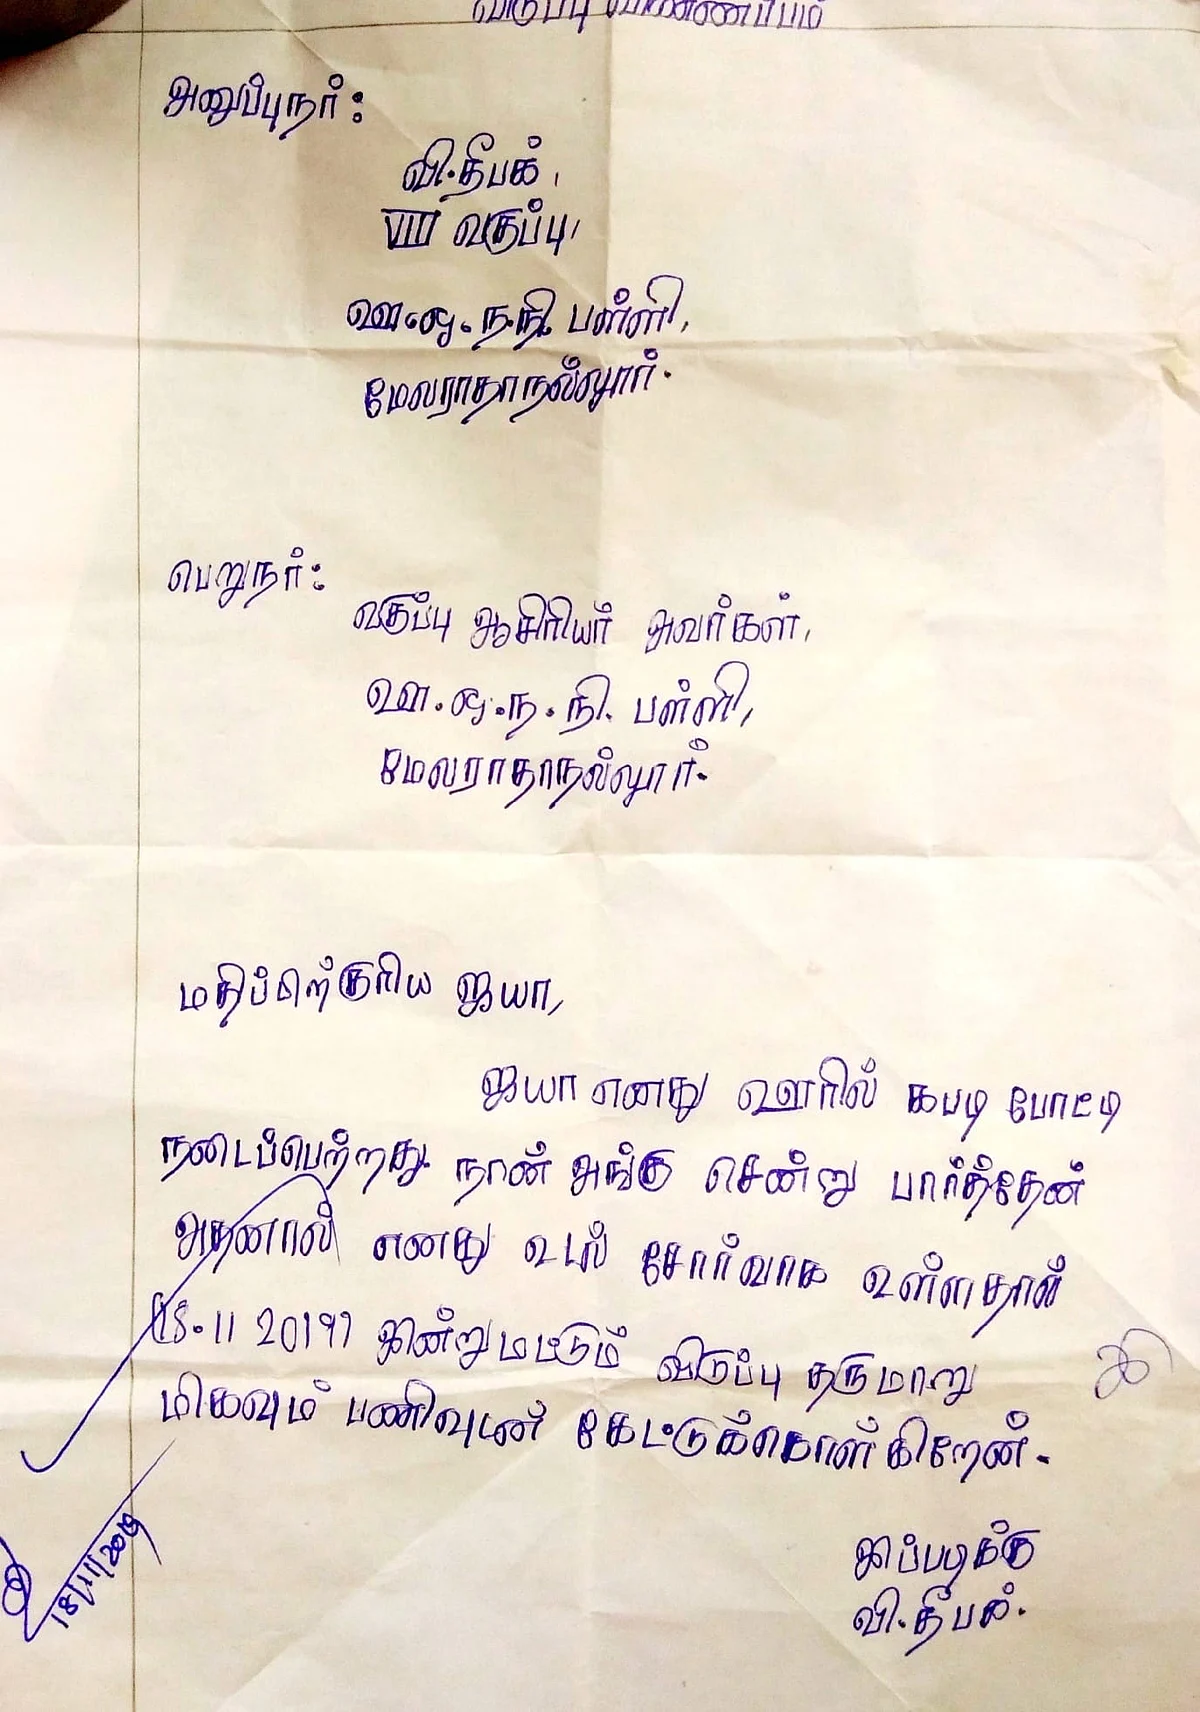 விடுப்பு விண்ணப்பம்
அனுப்புநர்:
வி.தீபக்,
VIII வகுப்பு,
ஊ.ஒ.ந.நி. பள்ளி,
மேலராதாநல்லூர்.
பெறுநர்:
வகுப்பு ஆசிரியர் அவர்கள்,
ஊ.ஒ.ந.நி. பள்ளி,
மேலராதாநல்லூர்.
மதிப்பிற்குரிய ஐயா,
ஐயா எனது ஊரில் கபடி போட்டி
நடைப்பெற்றது. நான் அங்கு சென்று பார்த்தேன்
அதனால் எனது உடல் சோர்வாக உள்ளதால்
இன்று மட்டும் விடுப்பு தருமாறு
மிகவும் பணிவுடன் கேட்டுக்கொள்கிறேன்.
இப்படிக்கு
வி.தீபக்.
18/11/2019